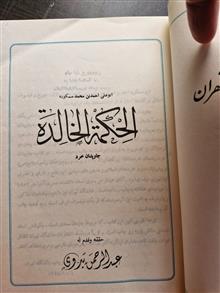 ابوعلی احمد بن محمد مسکویه
الحکمة الخالدة
جاویدان خرد
حققه وقدم له
عبدالرحمن بدوي
هران